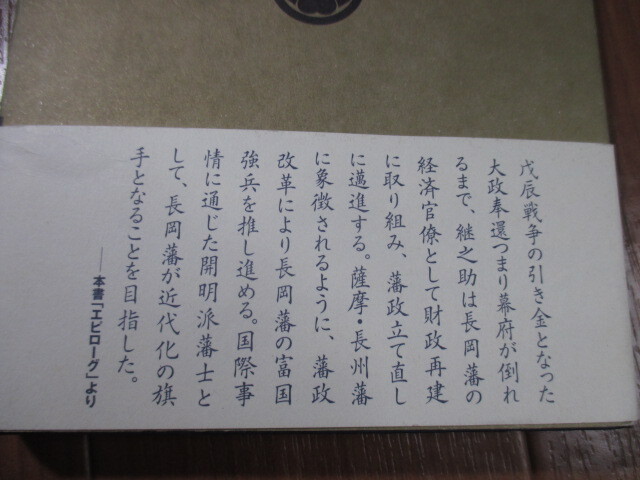 戊辰戦争の引き金となった
大政奉還つまり幕府が倒れ
るまで、継之助は長岡藩の
経済官僚として財政再建
に取り組み、藩政立て直し
に邁進する。薩摩・長州藩
に象徴されるように、藩政
改革により長岡藩の富国
強兵を推し進める。国際事
情に通じた開明派藩士と
して、長岡藩が近代化の旗
手となることを目指した。
──本書「エピローグ」より